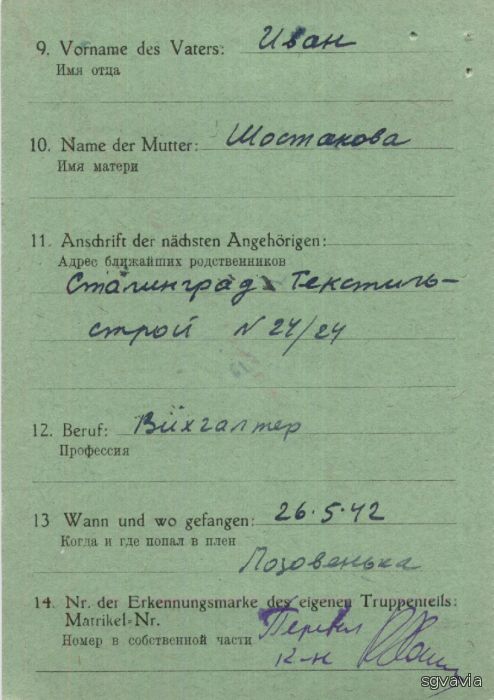 9. Vorname des Vaters: Иван
Имя отца
10. Name der Mutter: Шостакова
Имя матери
11. Anschrift der nächsten Angehörigen:
Адрес ближайших родственников
Сталинград Текстиль-
строй N 24/24
12. Beruf: Бухгалтер
Профессия
13 Wann und wo gefangen: 26.5.42
Когда и где попал в плен
Лозовенька
14. Nr. der Erkennungsmarke des eigenen Truppenteils:
Matrikel-Nr.
Номер в собственной части
Перевел
к-н
sgvavia